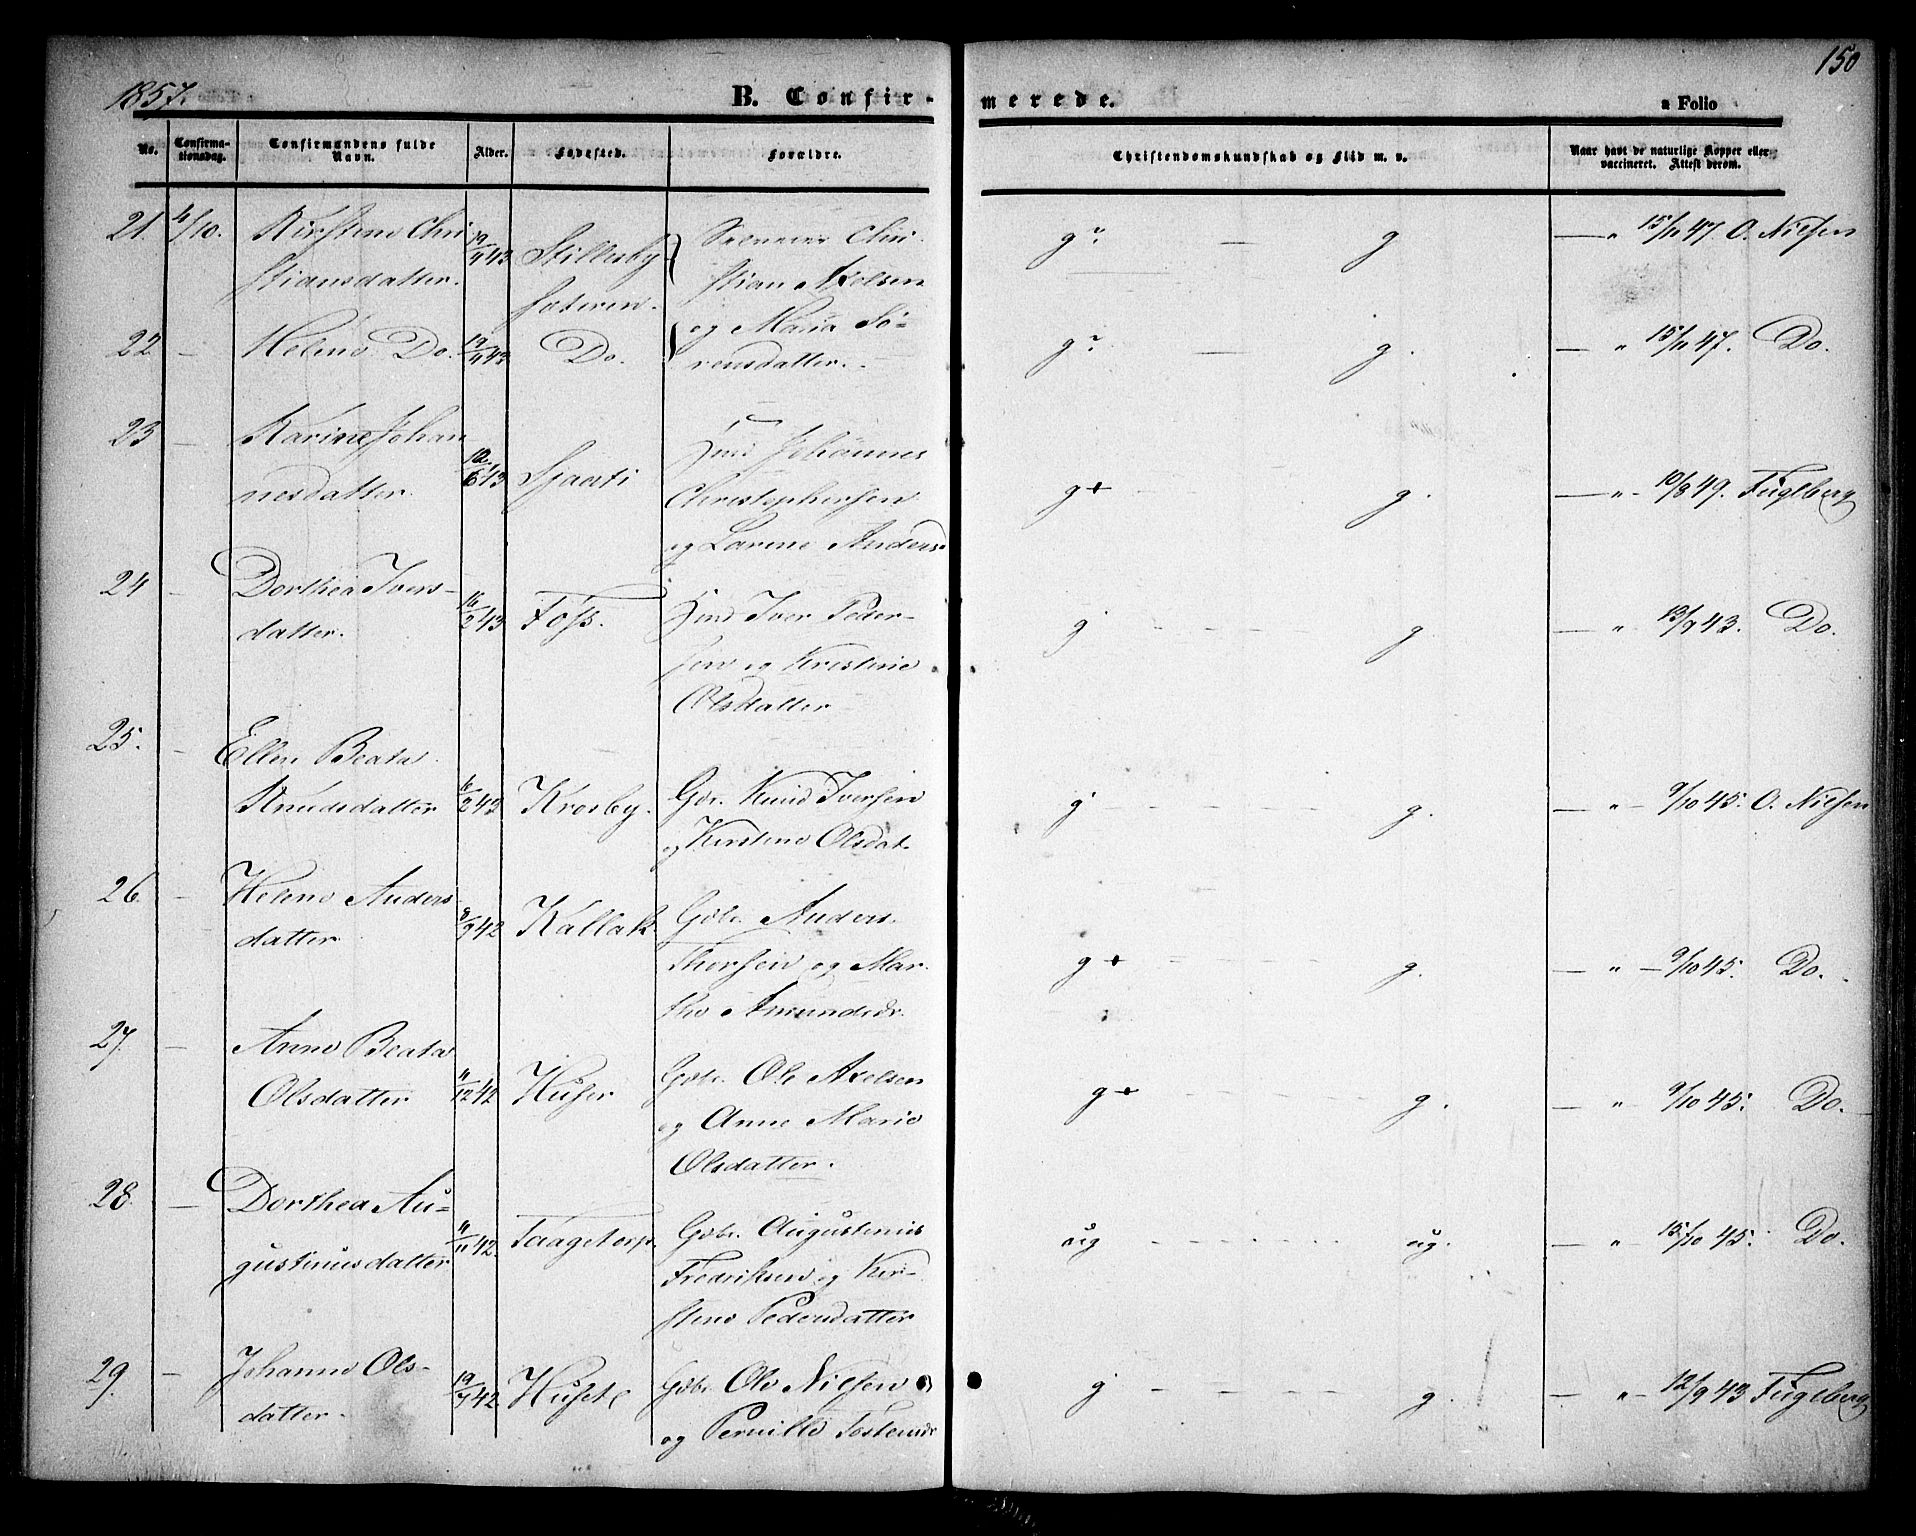 1857.
B. Confir-
merede.
a Folio
150
No.
Confirma-
tionsdag.
Confirmandens fulde
Navn.
Alder.
Fødested.
Forældre.
Christendomskundskab og Flid m. v.
Naar havt de naturlige Kopper eller
vaccineret. Attest derom.
21. 4/10. Kirstine Chri
stiansdatter.
19/11 43
Stillesby
Christian Axelsen
og Maria Sö-
rensdatter.
g? — g — " 15/11 47 O. Nilsen
22 — Helene Do. 19/11 43 Do.
g? — g. — " 15/11 47. Do.
23 — Karine Johan
nesdatter. 10/6 43
Johannes
Christophersen
og Larine Anders.
g+ - g. — " - 10/8 49. Fuglberg
24 — Dorthea Ivers-
datter. 16/2 43 Foss.
Iver Peder-
sen og Kristine
Olsdatter
g - g. — " 13/9 43. Do.
25. — Ellen Beata
Knudsdatter 16/2 42 Krosby.
Gbr. Knud Iversen
og Kirstine Olsdat.
g - g. — " - 9/10 45. O. Nilsen
26. — Helene Anders
datter 8/9 42 Kallak
Gbr. Anders
Thorsen og Mar.
the Amundsdr.
g+ - g. — " - 9/10 45. Do.
27. — Anne Beata
Olsdatter 11/12 42 Huser
Gbr. Ole Axelsen
og Anne Marie
Olsdatter.
g+ - g. — " - 9/10 45. Do.
28. — Dorthea Au=
gustinusdatter 11/11 42. Taagetorp.
Gbr. Augustinus
Fredriksen og Kir-
stine Pedersdatter
ug - ug. — " 15/10 45. Do.
29. — Johanne Ols-
datter. 42
Gbr. Ole Nilsen
og Pernille Tostensdr
g - g. — " - 12/9 43 Fuglberg